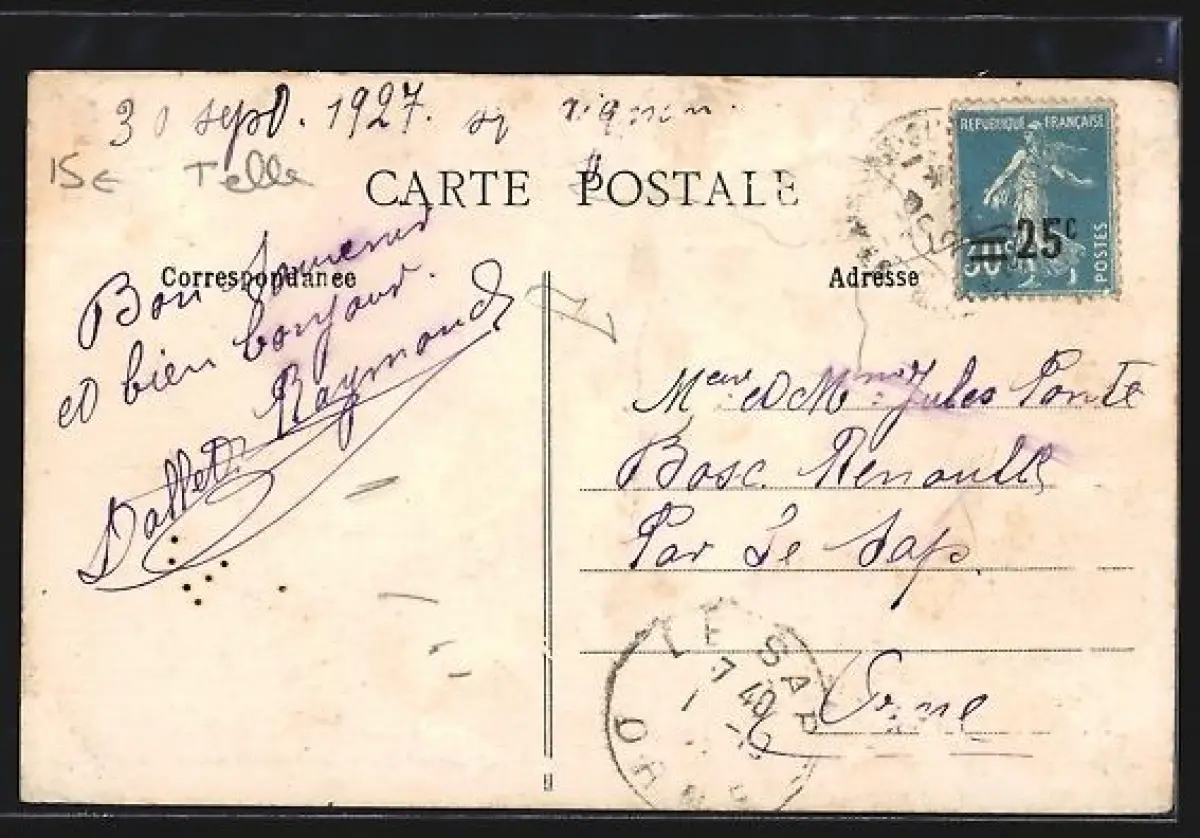 30 sept. 1927.
15€ Telle
CARTE POSTALE
REPUBLIQUE FRANÇAISE
30c 25c
POSTES
Correspondance
Adresse
Bon Souvenir
et bien bonjour.
Raymond
Dallet
Meur et Mme Jules Ponte
Bosc Renoult
Par Le Sap
Orne
LE SAP
7 40
ORNE